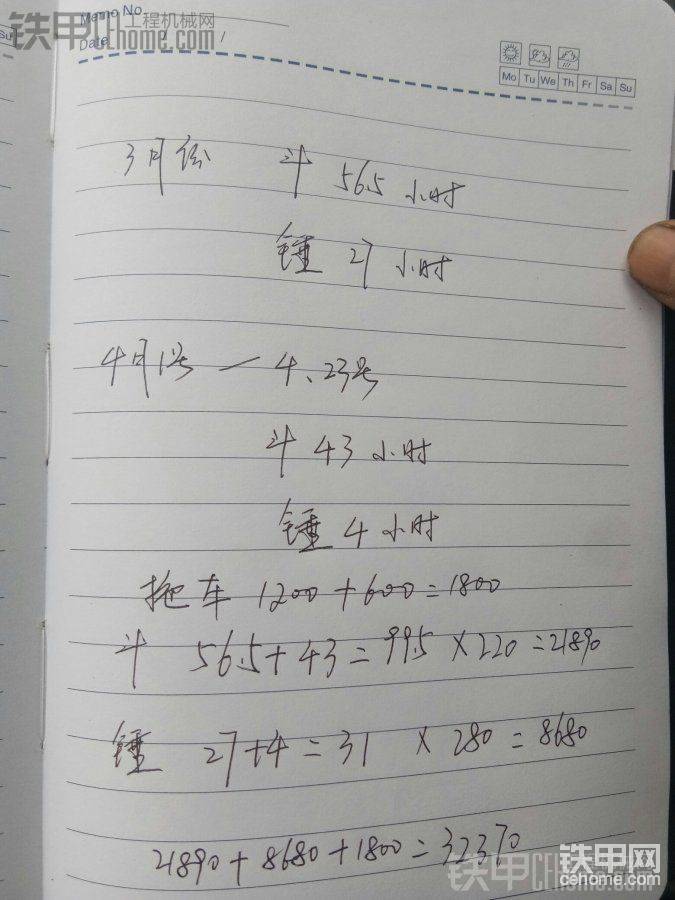 Memo No.
Date / /
铁甲 工程机械网
CEhome.com
Mo Tu We Th Fr Sa Su
3月份 斗 56.5 小时
锤 27 小时
4月1号 — 4、23号
斗 43 小时
锤 4 小时
拖车 1200+600=1800
斗 56.5+43=99.5×220=21890
锤 27+4=31 × 280=8680
21890+8680+1800=32370
铁甲网
cehome.com